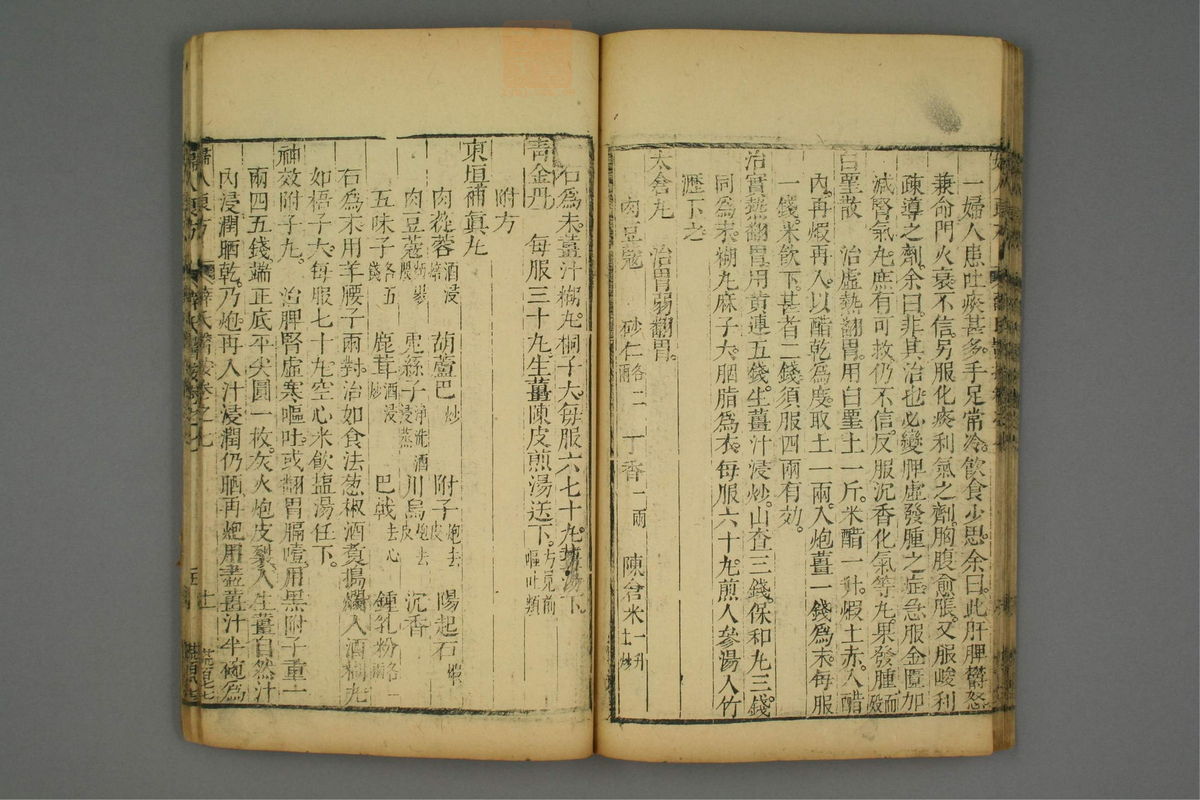 一婦人患吐痰甚多。手足常冷。飲食少思。余曰。此肝脾鬱怒
兼命門火衰不信。另服化痰利氣之劑。胸腹愈脹。又服峻利
疎導之劑。余曰。非其治也。必變脾虛發腫之症。急服金匱加
減腎氣丸。庶有可救。仍不信。反服沉香化氣等丸。果發腫而歿
白堊散　治虛熱翻胃。用白堊土一斤。米醋一升。煆土赤。入醋
內。再煆再入。以醋乾為度。取土一兩。入炮薑一錢為末。每服
一錢。米飲下。甚者二錢。須服四兩有效。
治實熱翻胃。用黃連五錢。生薑汁浸炒。山查三錢。保和丸三錢
同為末。糊丸麻子大。胭脂為衣。每服六十丸。煎人參湯入竹
瀝下之。
太倉丸　治胃弱翻胃。
肉豆蔻　砂仁各二兩　丁香一兩　陳倉米一升土炒
右為末。薑汁糊丸。桐子大。每服六七十丸。薑湯下。
青金丹　每服三十丸。生薑陳皮煎湯送下。方見前嘔吐類
附方
東垣補真丸
肉蓯蓉酒浸焙　葫蘆巴炒　附子炮去皮　陽起石煆
肉豆蔻麵裹煨　兎絲子淨洗酒浸蒸　川烏炮去皮　沉香
五味子各五錢　鹿茸酒浸炒　巴戟去心　鍾乳粉各一兩
右為末。用羊腰子兩對。治如食法。葱椒酒煑搗爛入酒糊丸
如梧子大。每服七十丸。空心米飲塩湯任下。
神效附子丸。　治脾腎虛寒嘔吐。或翻胃膈噎。用黑附子重一
兩四五錢。端正底平尖圓一枚。灰火炮皮裂。入生薑自然汁
內浸潤晒乾。乃炮。再入汁浸潤。仍晒再炮。用盡薑汁半碗為
婦人良方　薛氏醫案卷之七